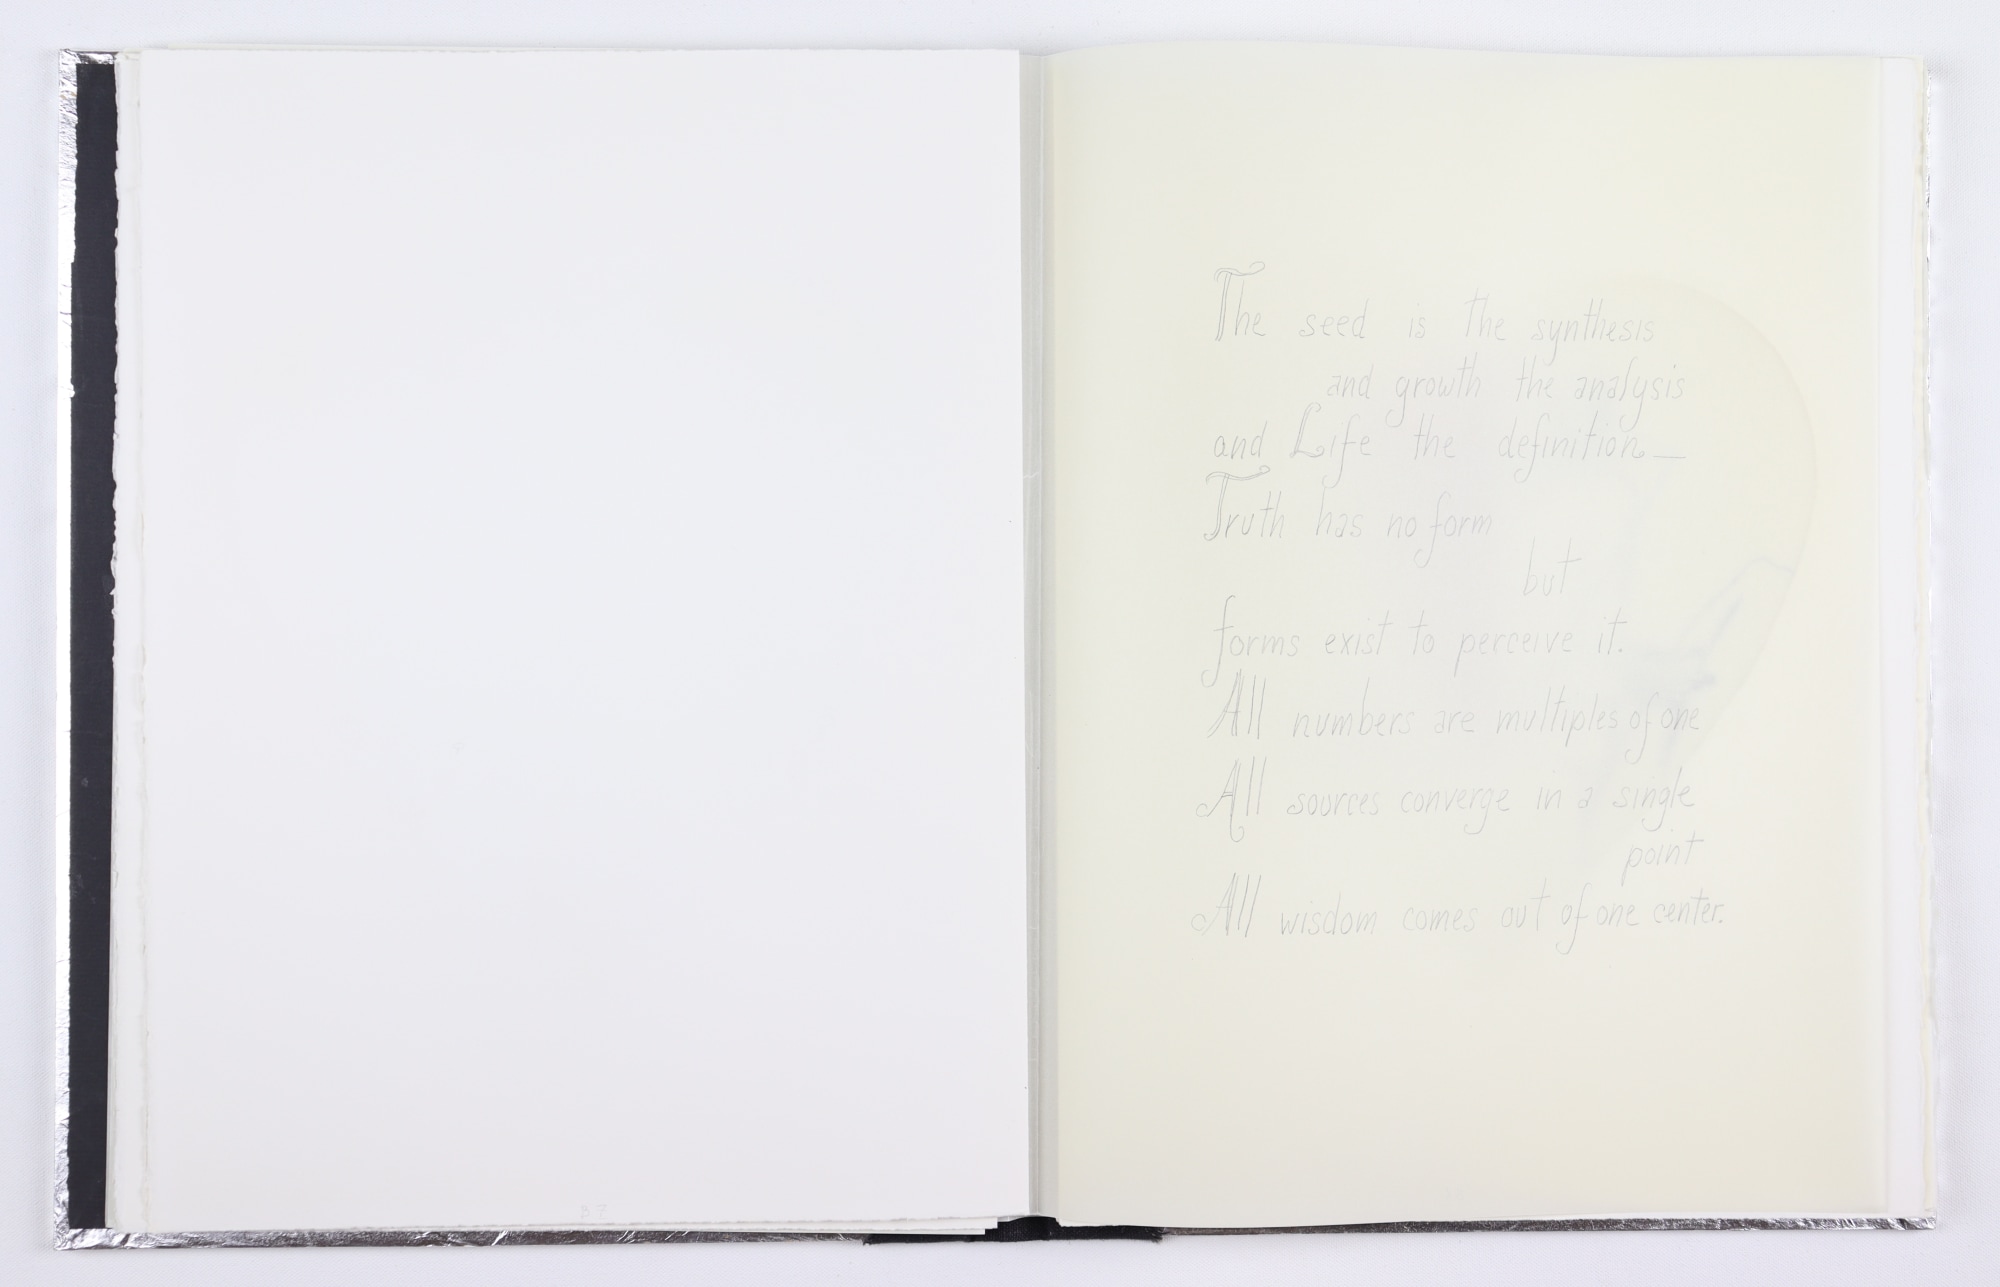 The seed is the synthesis
and growth the analysis
and Life the definition—
Truth has no form
but
forms exist to perceive it.
All numbers are multiples of one
All sources converge in a single
point
All wisdom comes out of one center.